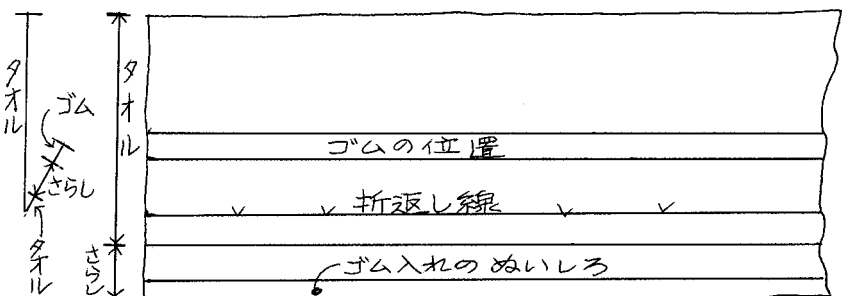 タオル
ゴム
さらし
タオル
タオル
さらし
ゴムの位置
折返し線
ゴム入れのぬいしろ